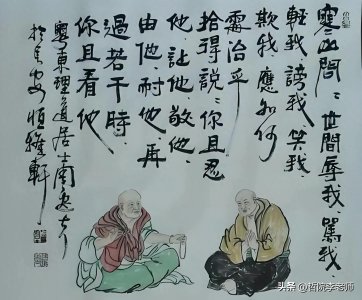 寒山問:世間辱我、罵我、
輕我、謗我、笑我、
欺我、應如何
處治乎
拾得說:你且忍
他、讓他、敬他、
由他、耐他、再
過若干時、
你且看他
粵東理道居士南
於長安恒雅軒
头条 @哲院李老师